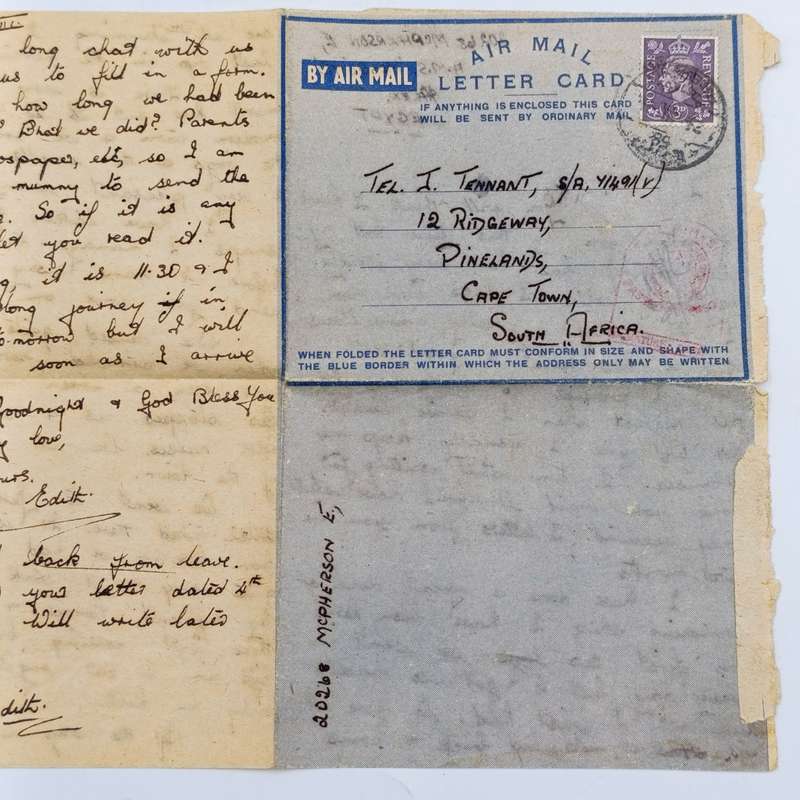 long chat with us
us to fill in a form.
how long we had been
What we did? Parents
newspaper, etc, so I am
mummy to send the
So if it is any
let you read it.
it is 11.30 & I
long journey in
to-morrow but I will
soon as I arrive
Goodnight & God Bless You
love,
Edith.
back from leave.
your letter dated 4th
Will write later
Edith.
BY AIR MAIL
AIR MAIL
LETTER CARD
IF ANYTHING IS ENCLOSED THIS CARD
WILL BE SENT BY ORDINARY MAIL
POSTAGE REVENUE
3D
TEL. I. TENNANT, S/A, 71491(V)
12 RIDGEWAY,
PINELANDS,
CAPE TOWN,
SOUTH AFRICA.
WHEN FOLDED THE LETTER CARD MUST CONFORM IN SIZE AND SHAPE WITH
THE BLUE BORDER WITHIN WHICH THE ADDRESS ONLY MAY BE WRITTEN
20268 MCPHERSON E,